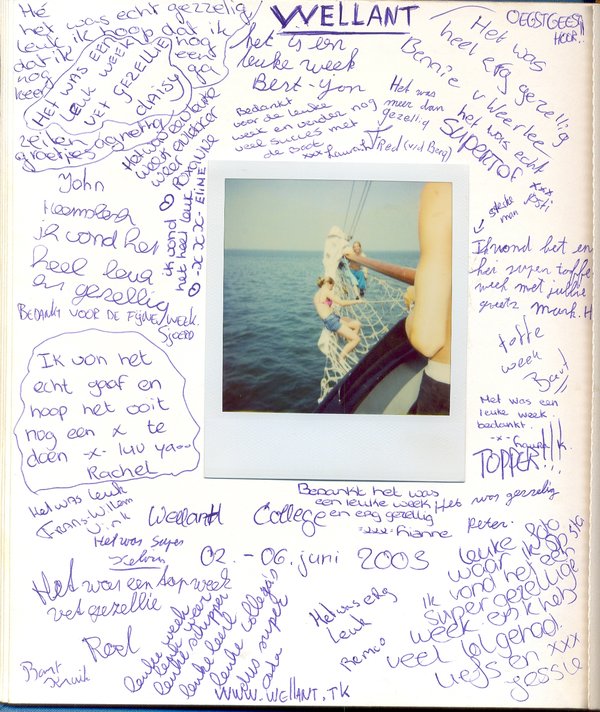 WELLANT
OEGSTGEEST
HOOR..
Hé
het was echt gezzelig
leuk
dat ik hoop dat ik
nog
keer
nog
eens
ga
zeilen
groetjes agnetha
HET WAS EEN
LEUK WEEK
VET GEZELLIE
daisy
het is een
leuke week
Bert-jon
Bedankt
voor de leuke
week en verder nog
veel succes met
de boot
xxx Laura
Het was
meer dan
gezellig
Fred (v/d Berg)
Het was
heel erg gezellig
Bennie v Weerlee
het was echt
SUPERTOF
xxx
sterke
man
ik vond
het heel leuk
-x x x- ELINE
Roxanne
John
Heemskerk
ik vond het
heel leuk
en gezellig
BEDANKT VOOR DE FIJNE WEEK.
SJOERD
Ik vond het en
hei super toffe
week met jullie
groetz Mark.H
toffe
week
Ik von het
echt gaaf en
hoop het ooit
nog een x te
doen -x- luv yaoo
Rachel
Het was een
leuke week.
bedankt.
-x-
TOPPER!!!
Het was leuk
Frans-Willem
Vink
Het was super
Kelvin
Wellant College
Bedankt het was
een leuke week
en erg gezellig
xxx- Lianne
Het was gezzelig
Peter.
02.-06. juni 2003
Het was een topweek
vet gezellie
Roel
Bart
Kruik
leuke week
leuk weer
leuke schipper
leuke leerl
leuke collega's
dus super
Ada
Het was erg
Leuk
Remco
leuke foto
waar ik op sta
ik vond het een
super gezellige
week en ik heb
veel lol gehad.
liefs en xxx
Jessie
WWW.WELLANT.TK